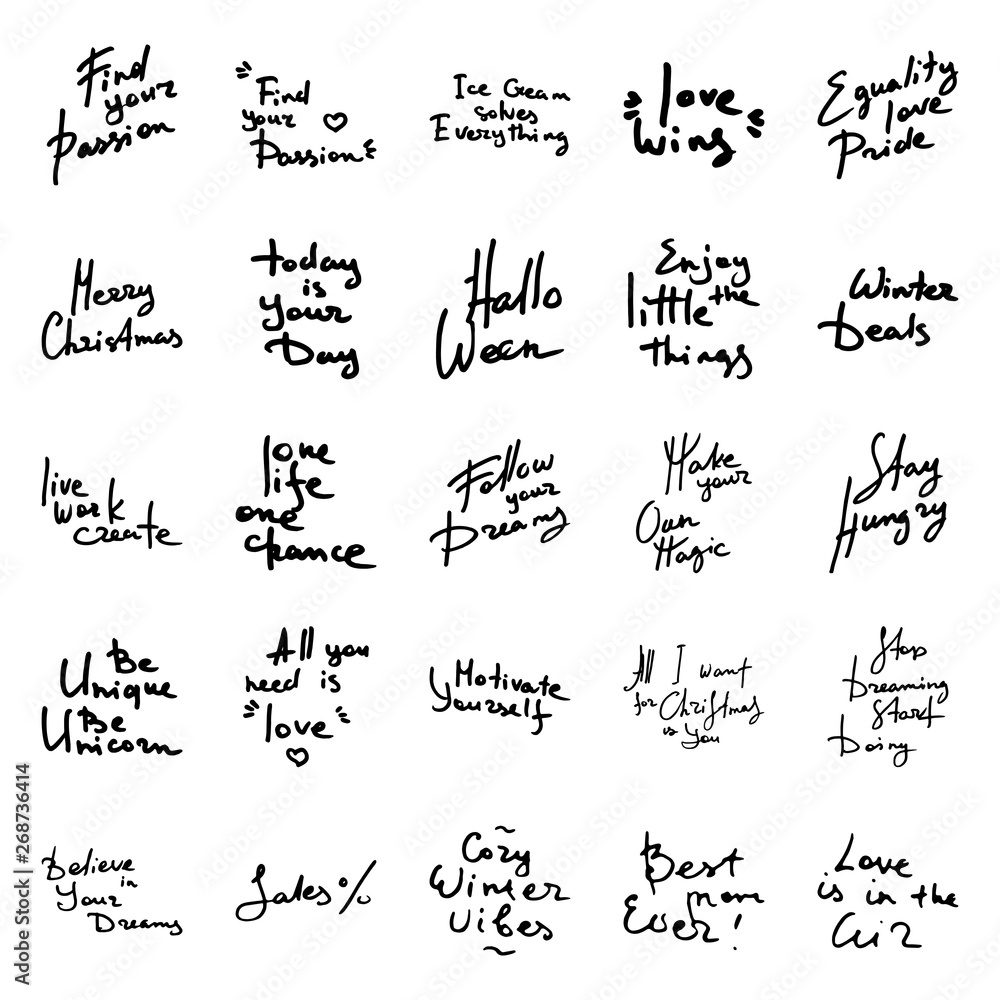 Find
your
Passion
Find
your
Passion
Ice Cream
solves
Everything
love
wins
Equality
love
Pride
Merry
Christmas
today
is
your
Day
Hallo
Ween
Enjoy
little the
things
Winter
Deals
live
work
create
one
life
one
chance
Follow
your
Dreams
Make
your
Own
Magic
Stay
Hungry
Be
Unique
Be
Unicorn
All you
need is
"love"
Motivate
Yourself
All I want
for Christmas
is You
Stop
Dreaming
Start
Doing
Believe
in
Your
Dreams
Sales %
Cozy
Winter
Vibes
Best
mom
Ever!
Love
is in the
Air
Adobe Stock | #268736414